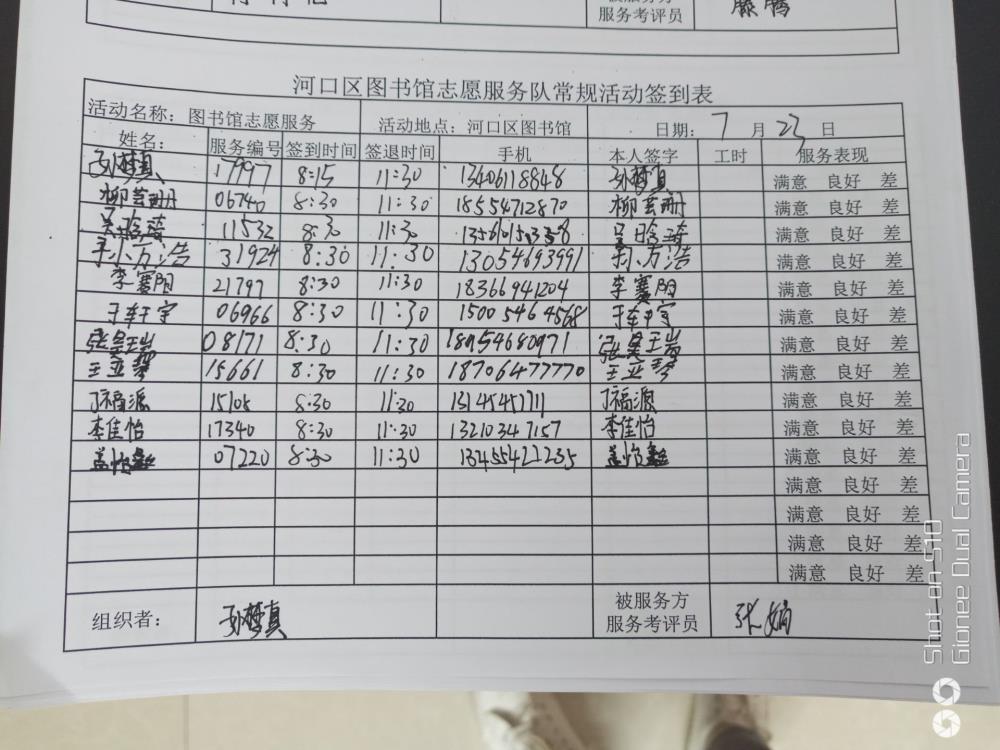 服务考评员
河口区图书馆志愿服务队常规活动签到表
活动名称：图书馆志愿服务 活动地点：河口区图书馆 日期：7 月 23 日
姓名： 服务编号 签到时间 签退时间 手机 本人签字 工时 服务表现
孙梦真 17997 8:15 11:30 13406118848 孙梦真 满意 良好 差
柳芸珊 06740 8:30 11:30 18554712870 柳芸珊 满意 良好 差
11532 8:30 11:30 满意 良好 差
31924 8:30 11:30 13054693991 满意 良好 差
李赛阳 21797 8:30 11:30 18366941204 李赛阳 满意 良好 差
06966 8:30 11:30 15005464568 满意 良好 差
08171 8:30 11:30 18954680971 满意 良好 差
王亚琴 15661 8:30 11:30 18706477770 王亚琴 满意 良好 差
丁福源 15108 8:30 11:30 丁福源 满意 良好 差
李佳怡 17340 8:30 11:30 13210347157 李佳怡 满意 良好 差
07220 8:30 11:30 满意 良好 差
满意 良好 差
满意 良好 差
满意 良好 差
满意 良好 差
组织者： 孙梦真 被服务方 张娟
服务考评员
Shot on S10
Gionee Dual Camera